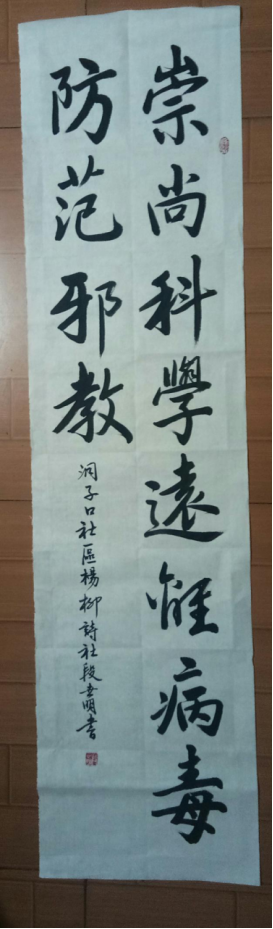 崇尚科學遠離病毒
防范邪教
洞子口社區楊柳詩社段明書